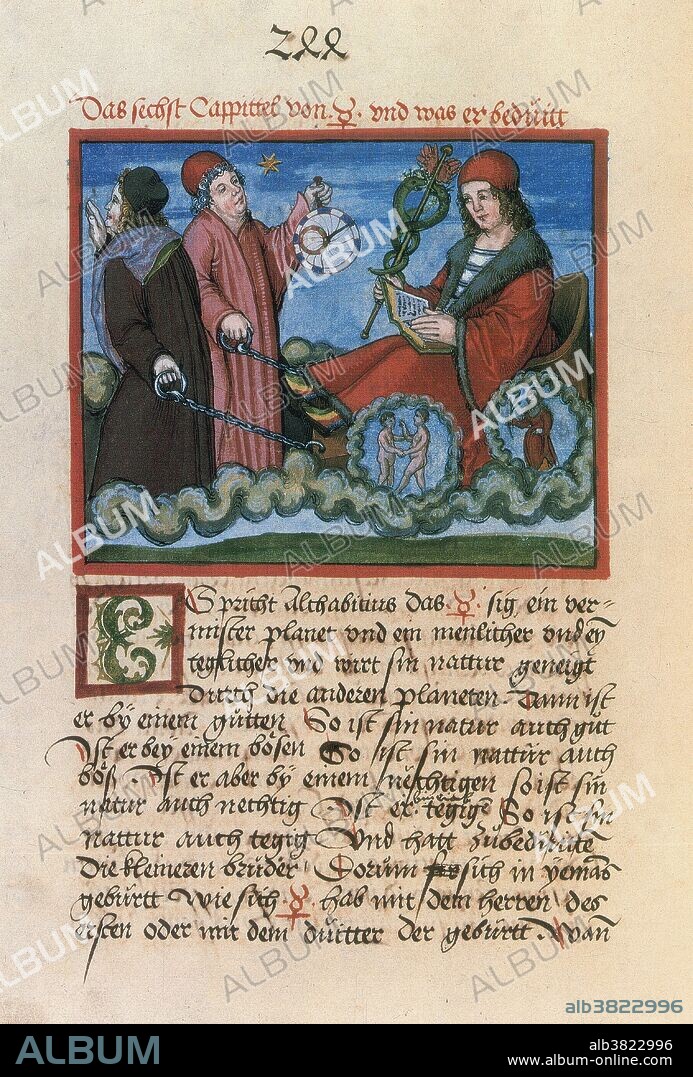 Das sechst Cappittel von ☿ vnd was er bedrütt
ES spricht Alchabitius das ☿ sig ein ver-
mister planet vnd ein menlicher vnd ey
teglicher vnd wirt sin nattur geneigt
durch die anderen planeten Dann ist
er by einem gütten So ist sin natur auch gut
Ist er bey einem bösen So ist sin nattur auch
böß Ist er aber by einem nechtigen so ist sin
natur auch nechtig Ist er tegigs So ist sin
nattur auch tegig Vnd hatt zübedütte
die kleineren brüder Dorum sich in yemas
gebürtt Wie sich ☿ hab mit dem herren des
ersten oder mit dem duitter der gebürtt Wan
ALBUM
alb3822996
ALBUM
alb3822996
www.album-online.com